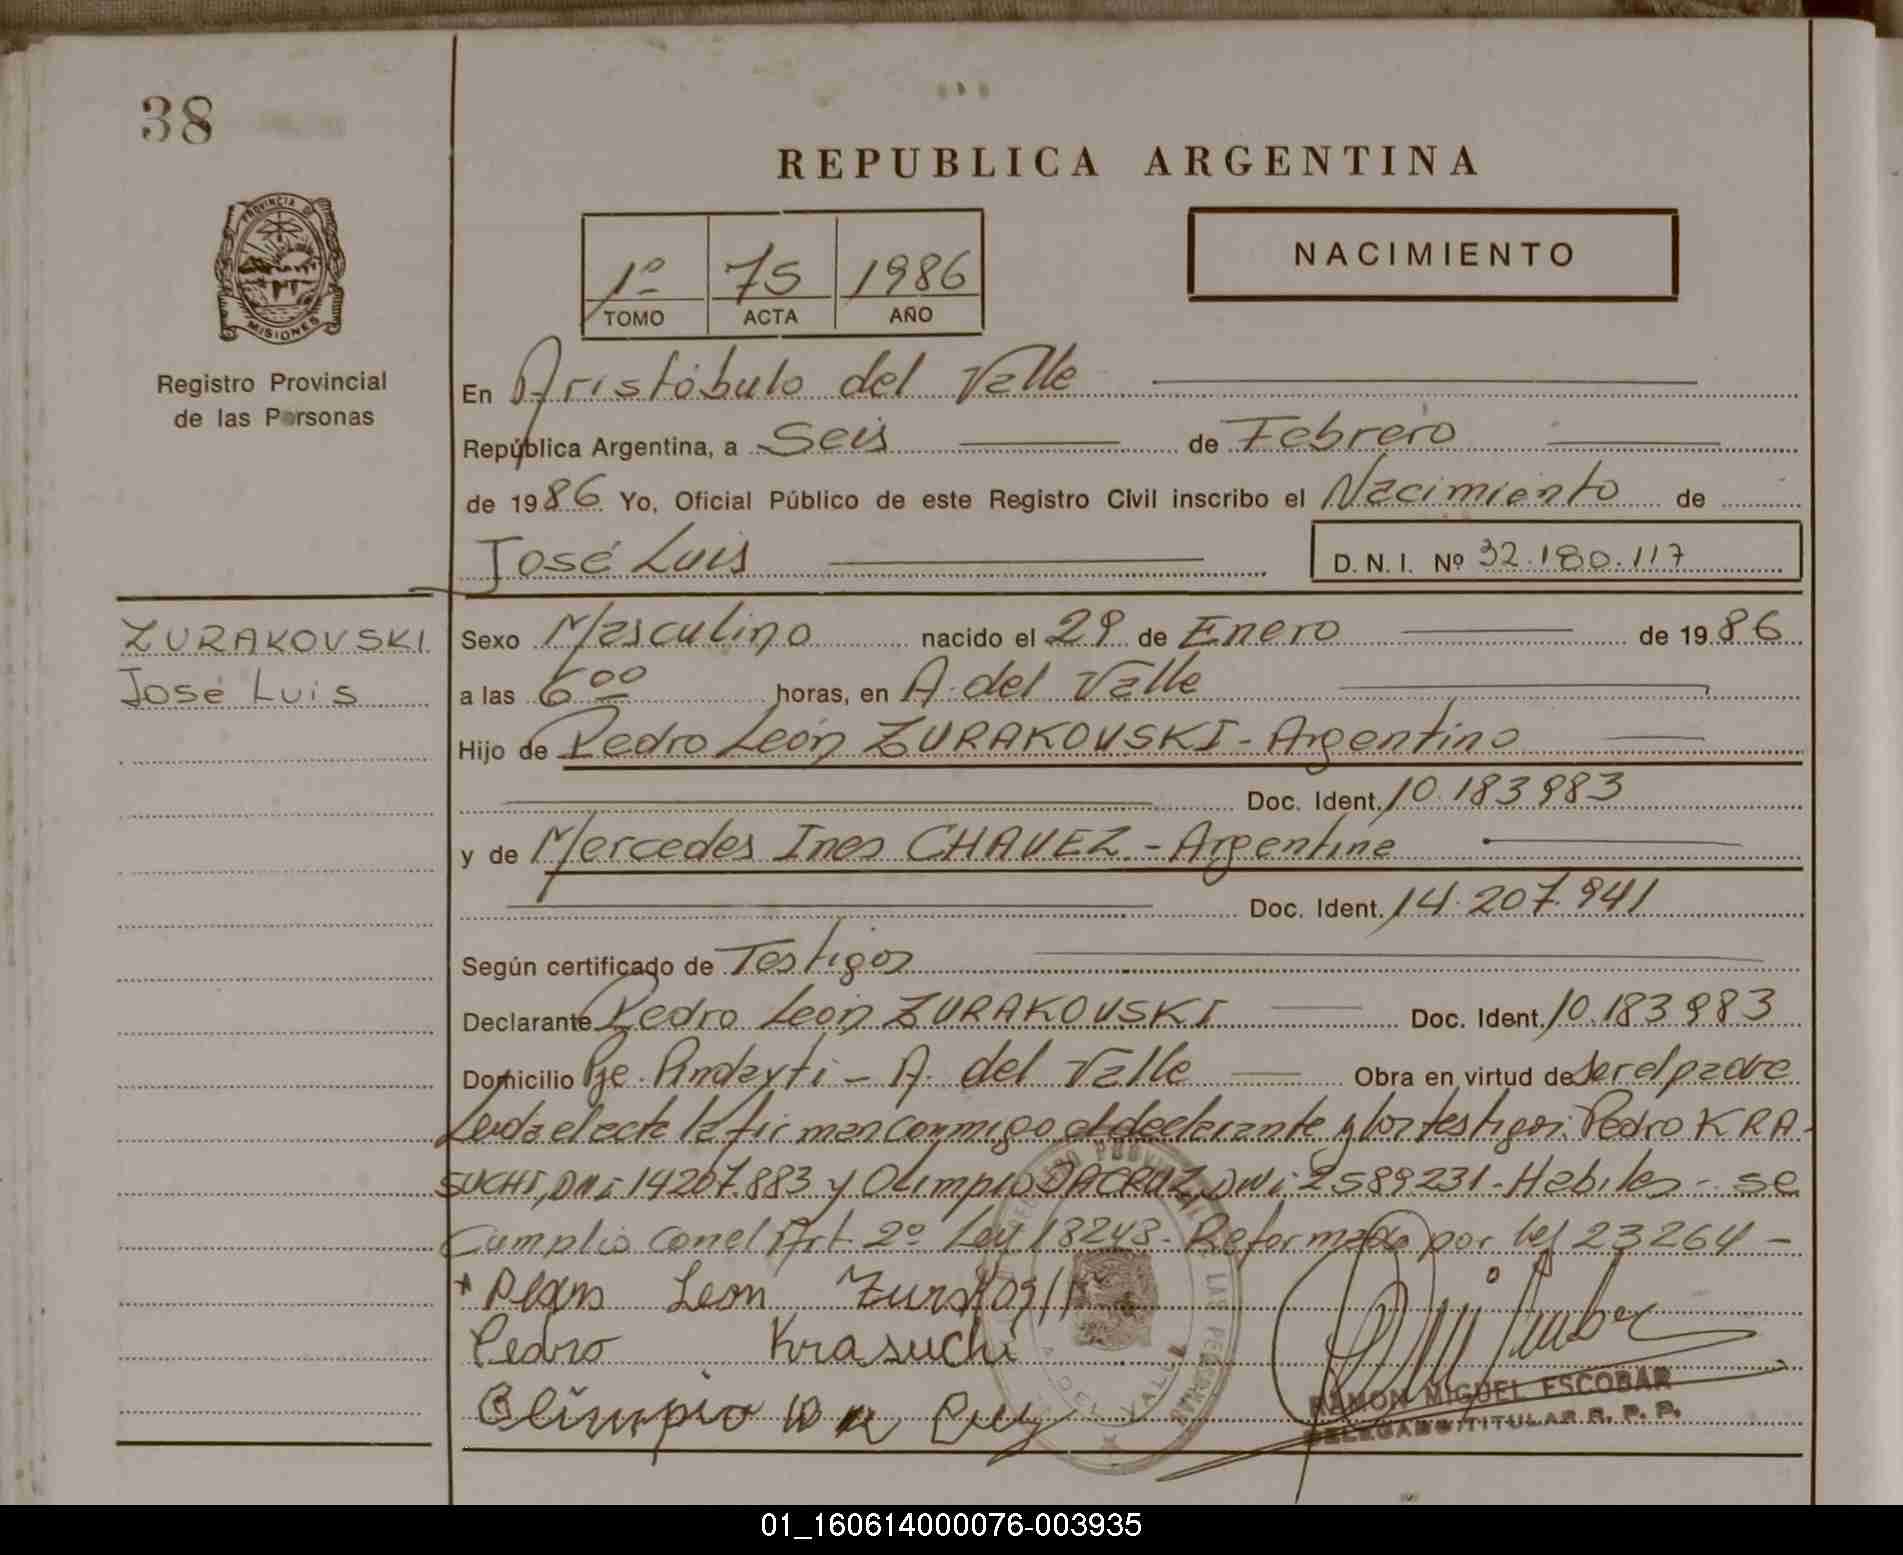 38
REPUBLICA ARGENTINA
PROVINCIA DE
MISIONES
Registro Provincial
de las Personas
1º 75 1986
TOMO ACTA AÑO
NACIMIENTO
En Aristóbulo del Valle
República Argentina, a Seis de Febrero
de 1986 Yo, Oficial Público de este Registro Civil inscribo el Nacimiento de
José Luis D.N.I. Nº 32.180.117
ZURAKOVSKI
José Luis
Sexo Masculino nacido el 29 de Enero de 1986
a las 6 00 horas, en A. del Valle
Hijo de Pedro León ZURAKOVSKI - Argentino
Doc. Ident. 10.183983
y de Mercedes Ines CHAVEZ - Argentina
Doc. Ident. 14.207.941
Según certificado de Testigos
Declarante Pedro León ZURAKOVSKI Doc. Ident. 10.183983
Domicilio Pje. Andayti - A. del Valle Obra en virtud de ser el padre
Leida el acta la firman conmigo el declarante y los testigos: Pedro KRA-
SUCHI, DNI 14207.883 y Olimpio DACRUZ, DNI 2589231 - Habiles - se
Cumplio con el Art. 2º Ley 18248 - Reformado por ley 23264 -
Leon
Pedro Krasuchi
Olimpio Da Cruz
REGISTRO PROVINCIAL DE LAS PERSONAS
A. DEL VALLE
RAMON MIGUEL ESCOBAR
DELEGADO TITULAR R. P. P.
01_160614000076-003935